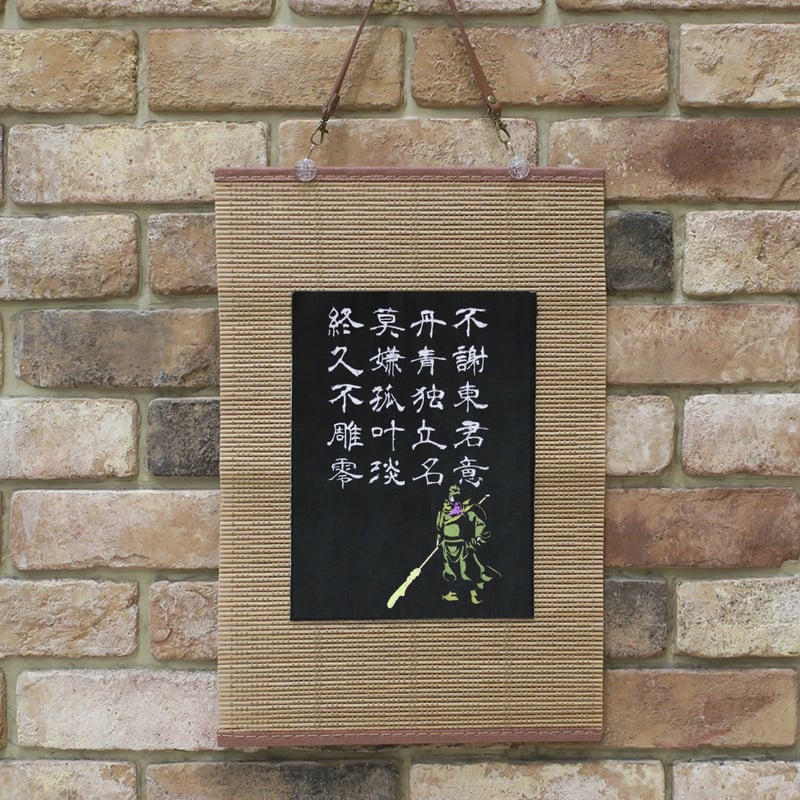 不謝東君意
丹青独立名
莫嫌孤叶淡
終久不雕零